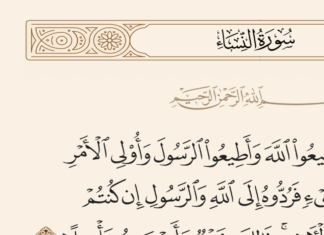 سُورَةُ النِّسَاءِ
ـمِ ٱللَّهِ ٱلرَّحْمَٰنِ ٱلرَّحِيمِ
ـيعُوا۟ ٱللَّهَ وَأَطِيعُوا۟ ٱلرَّسُولَ وَأُو۟لِى ٱلْأَمْرِ
ـىْءٍ فَرُدُّوهُ إِلَى ٱللَّهِ وَٱلرَّسُولِ إِن كُنتُمْ